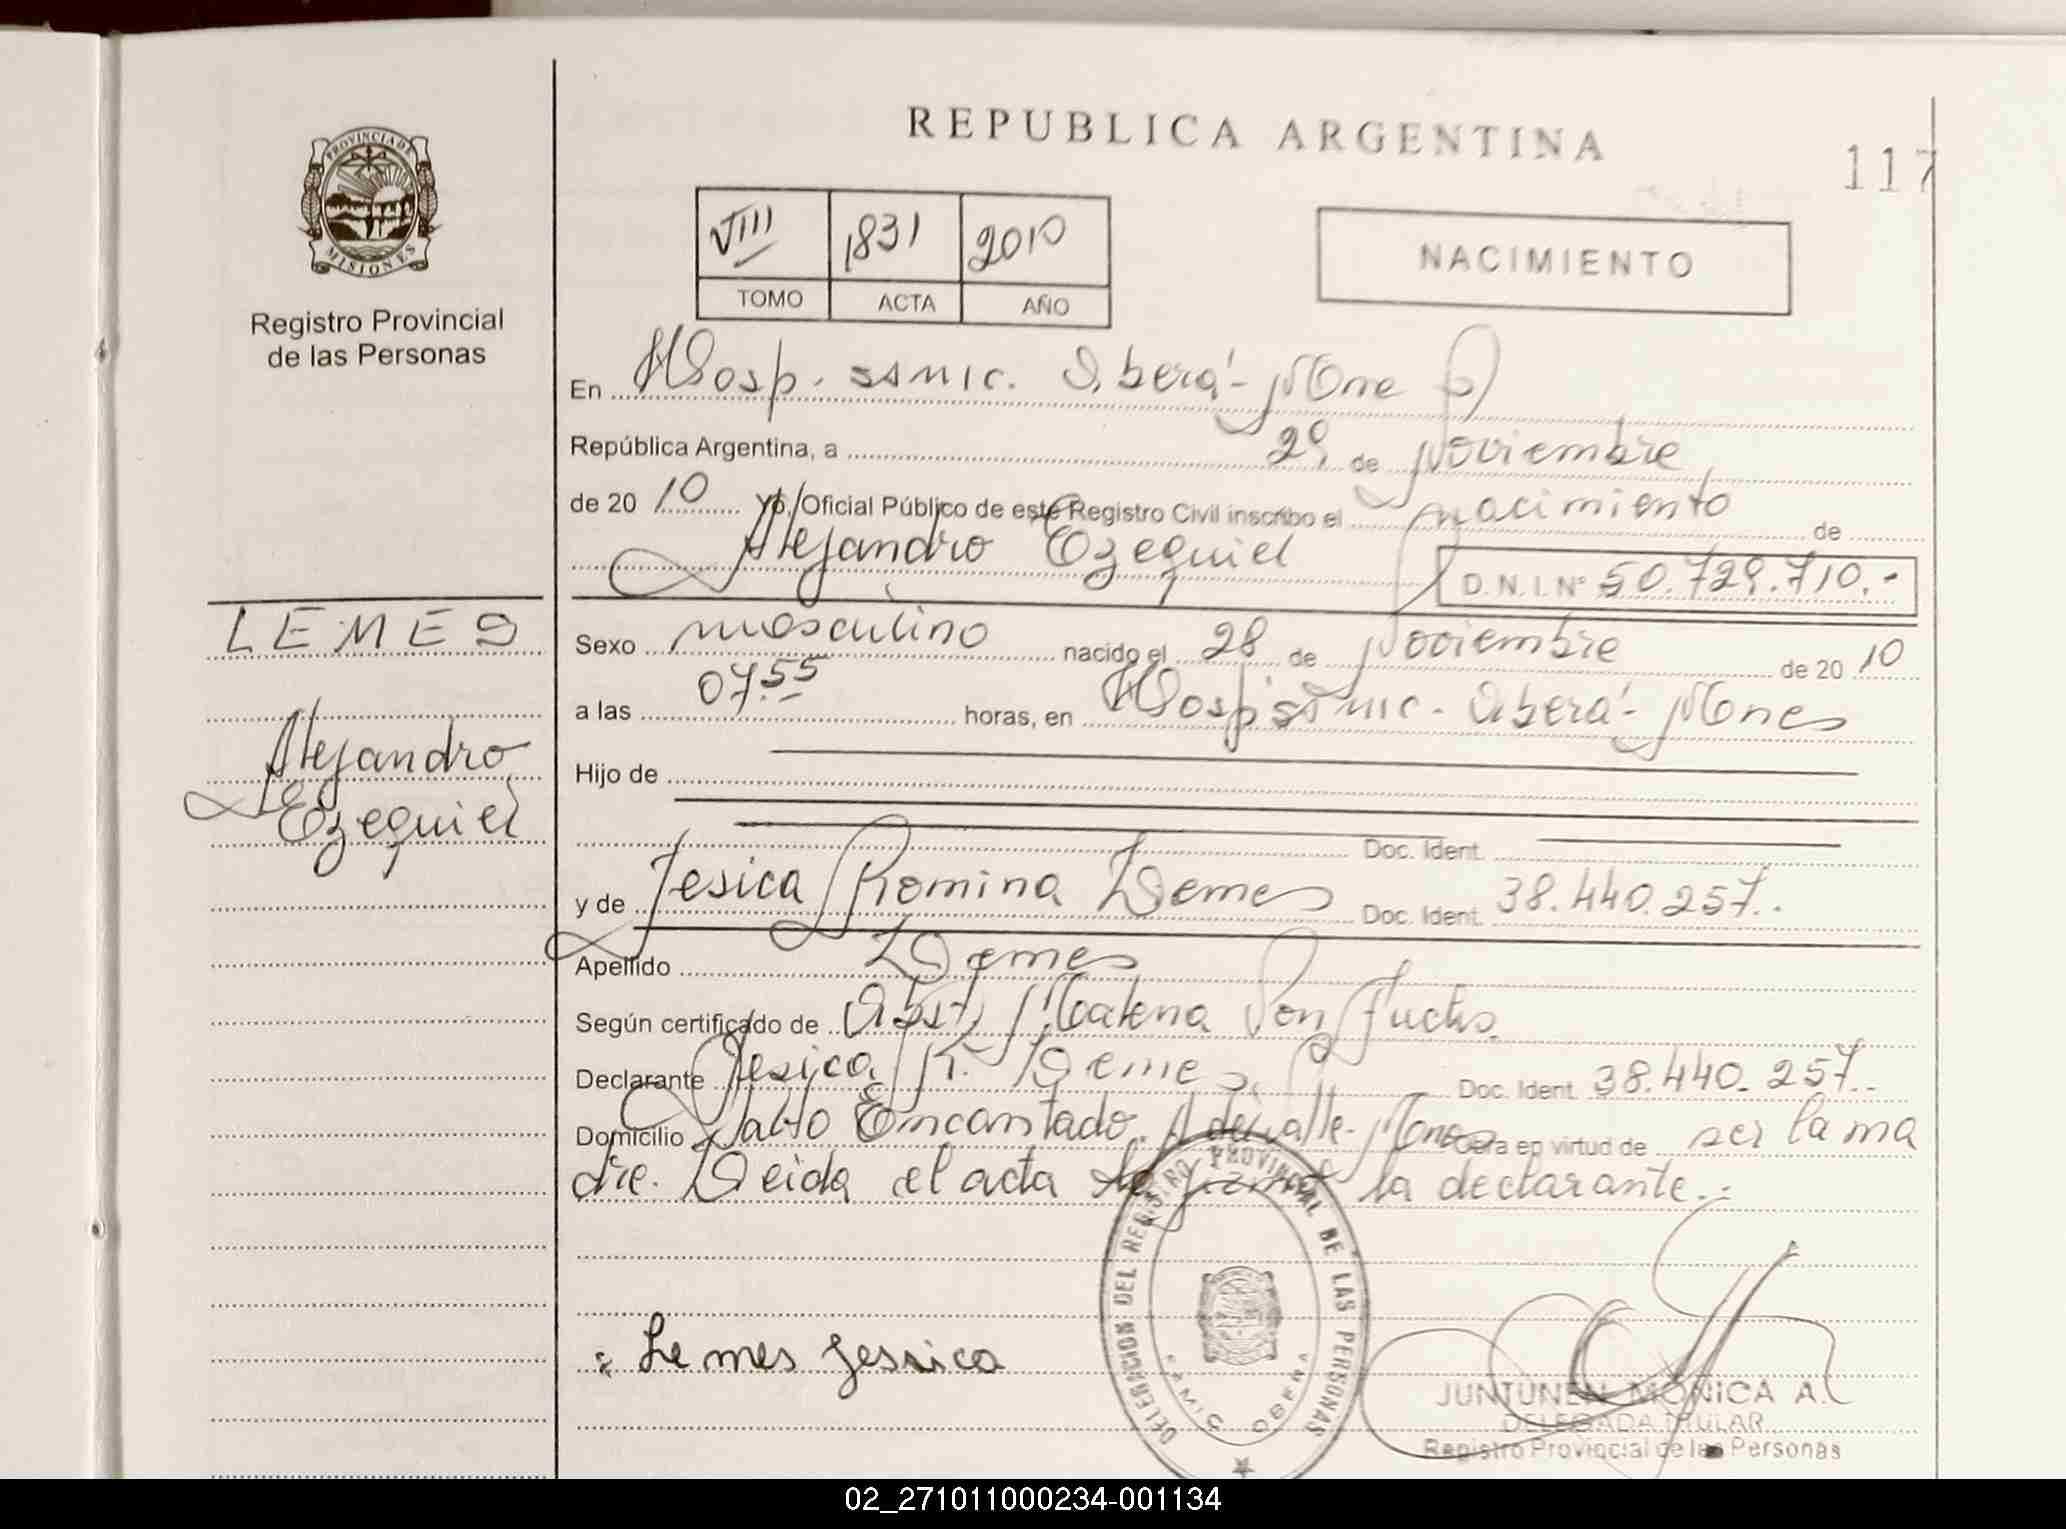 REPUBLICA ARGENTINA
117
PROVINCIA DE
MISIONES
Registro Provincial
de las Personas
VIII 1831 2010
TOMO ACTA AÑO
NACIMIENTO
En Hosp. SAMIC. Oberá - Mnes
República Argentina, a 29 de Noviembre
de 20 10 Yo, Oficial Público de este Registro Civil inscribo el Nacimiento de
Alejandro Ezequiel
D.N.I. Nº 50.729.710.-
LEMES
Alejandro
Ezequiel
Sexo masculino nacido el 28 de Noviembre de 20 10
a las 07.55 horas, en Hosp. Samic - Oberá - Mones
Hijo de
Doc. Ident.
y de Jesica Romina Lemes Doc. Ident. 38.440.257..
Apellido Lemes
Según certificado de Obst. Von Fuchs.
Declarante Jesica R. Lemes. Doc. Ident. 38.440.257..
Domicilio Salto Encantado. A del valle - Mones Obra en virtud de ser la ma
dre. Leida el acta la firma la declarante.:
Lemes Jessica
DELEGACION DEL REGISTRO PROVINCIAL DE LAS PERSONAS
OBERA
JUNTUNEN MONICA A.
DELEGADA TITULAR
Registro Provincial de las Personas
02_271011000234-001134